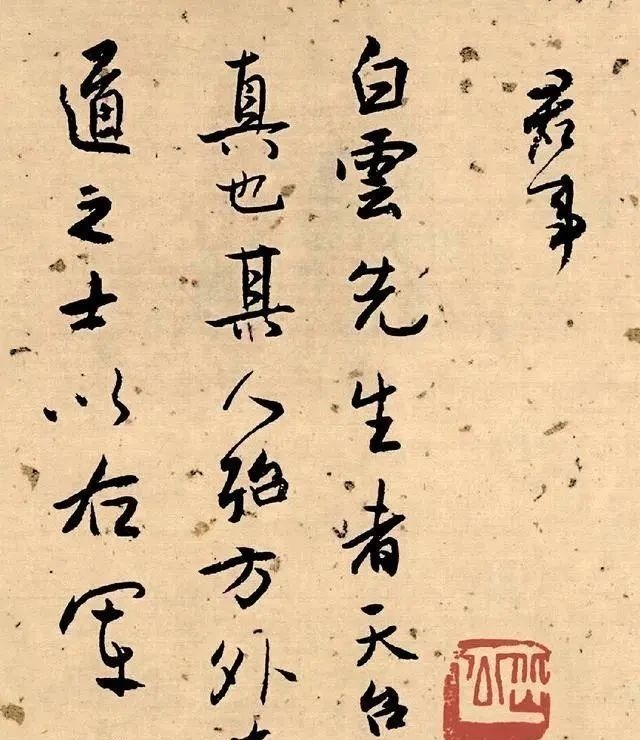 君事
白雲先生者天台
真也其人殆方外
道之士以右軍